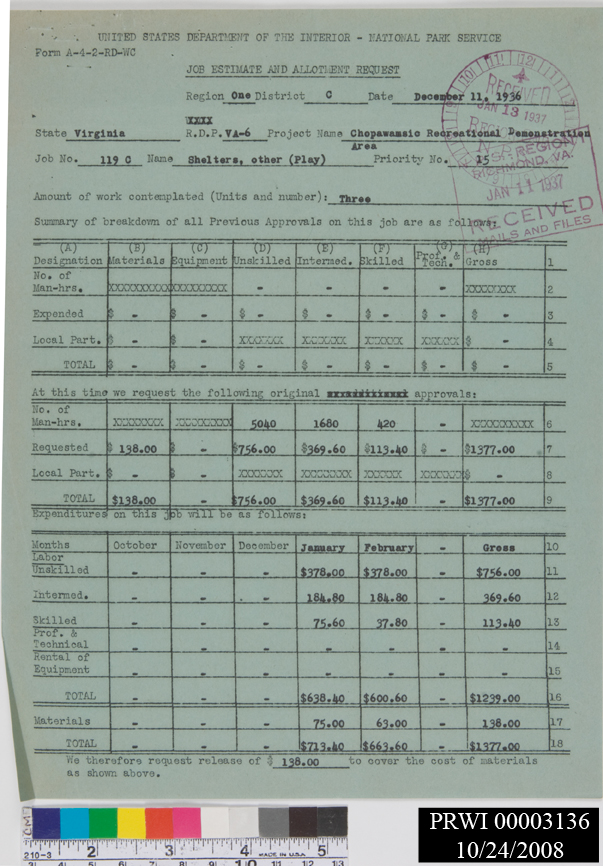 UNITED STATES DEPARTMENT OF THE INTERIOR - NATIONAL PARK SERVICE
Form A-4-2-RD-WC
JOB ESTIMATE AND ALLOTMENT REQUEST
Region One District C Date December 11, 1936
XXXX
State Virginia R.D.P. VA-6 Project Name Chopawamsic Recreational Demonstration Area
Job No. 119 C Name Shelters, other (Play) Priority No. 15
RECEIVED
JAN 13 1937
N.P.S. REGION 1
RICHMOND, VA.
JAN 11 1937
RECEIVED
MAILS AND FILES
Amount of work contemplated (Units and number): Three
Summary of breakdown of all Previous Approvals on this job are as follows:
(A) (B) (C) (D) (E) (F) (G) (H)
Designation Materials Equipment Unskilled Intermed. Skilled Prof. & Tech. Gross 1
No. of
Man-hrs. XXXXXXXXXX XXXXXXXXX - - - - XXXXXXXX 2
Expended $ - $ - $ - $ - $ - $ - $ - 3
Local Part. $ - $ - XXXXXXX XXXXXXX XXXXXX XXXXXX $ - 4
TOTAL $ - $ - $ - $ - $ - $ - $ - 5
At this time we request the following original xxxxxxxxxxxxx approvals:
No. of
Man-hrs. XXXXXXXX XXXXXXXXX 5040 1680 420 - XXXXXXXXXX 6
Requested $ 138.00 $ - $756.00 $369.60 $113.40 $ - $1377.00 7
Local Part. $ - $ - XXXXXXX XXXXXXXX XXXXXX XXXXXXX $ - 8
TOTAL $138.00 - $756.00 $369.60 $113.40 - $1377.00 9
Expenditures on this job will be as follows:
Months October November December January February - Gross 10
Labor
Unskilled - - - $378.00 $378.00 - $756.00 11
Intermed. - - - 184.80 184.80 - 369.60 12
Skilled - - - 75.60 37.80 - 113.40 13
Prof. &
Technical - - - - - - - 14
Rental of
Equipment - - - - - - - 15
TOTAL - - - $638.40 $600.60 - $1239.00 16
Materials - - - 75.00 63.00 - 138.00 17
TOTAL - - - $713.40 $663.60 - $1377.00 18
We therefore request release of $ 138.00 to cover the cost of materials
as shown above.
210-3
2 3 4 5
MADE IN U.S.A.
PRWI 00003136
10/24/2008